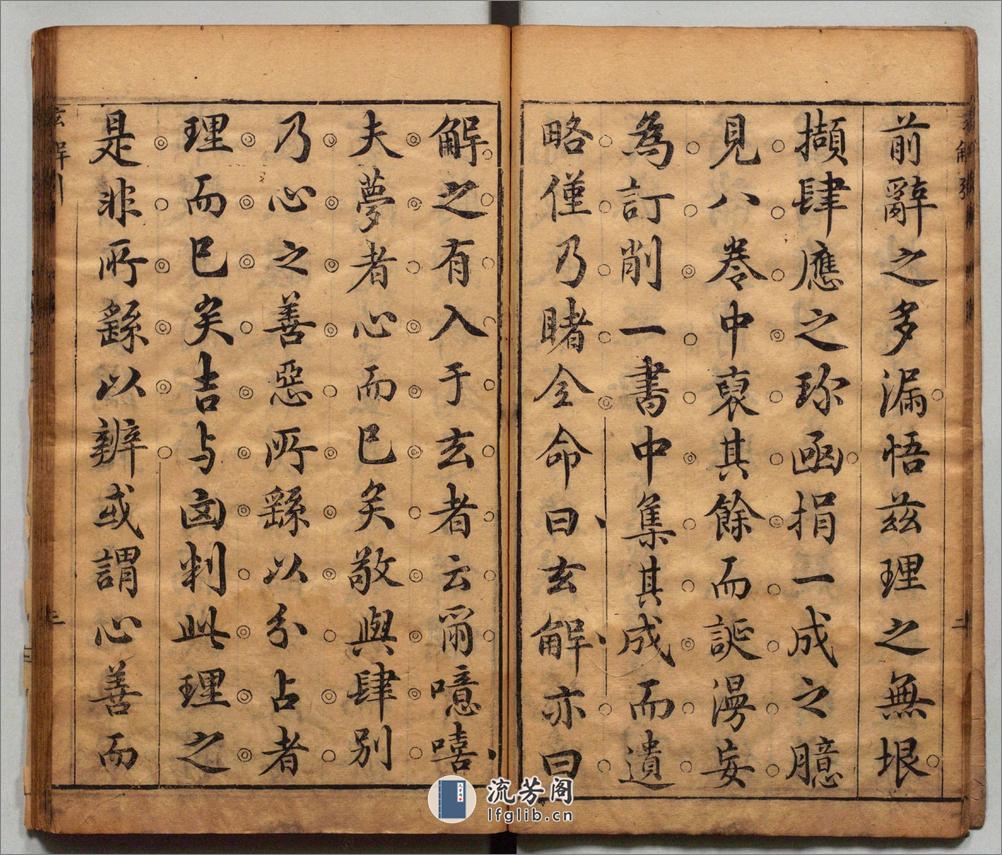 前辭之多漏悟茲理之無垠
擷肆應之珎函捐一成之臆
見八卷中裒其餘而誕漫妄
為訂削一書中集其成而遺
略僅乃睹今命曰玄解亦曰
解之有入于玄者云爾噫嘻
夫夢者心而已矣敬與肆別
乃心之善惡所繇以分占者
理而已矣吉与凶判此理之
是非所繇以辨或謂心善而
玄解引
流芳阁
lfglib.cn